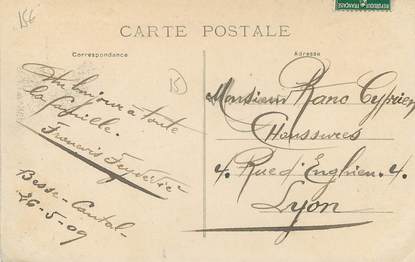 156
CARTE POSTALE
Correspondance
Adresse
15
Un bonjour à toute
la famille.
Francois
Besse-Cantal-
26-5-09
Monsieur Ranc Cyprien
Chaussures
4. Rue d'Enghien. 4.
Lyon